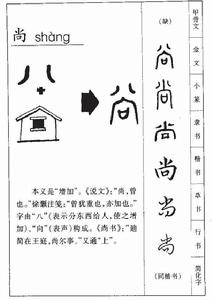 尚 shàng
八
尚
本义是“增加”。《说文》：“尚，曾
也。”徐灏注笺：“曾犹重也，亦加也。”
字由“八”（表示分东西给人，使之增
加）、“向”（表声）构成。《尚书》：“迪
简在王庭，尚尔事。”又通“上”。
（缺）
尚
尚
尚
尚
尚
尚
（同楷书）
甲骨文
金文
小篆
隶书
楷书
草书
行书
简化字